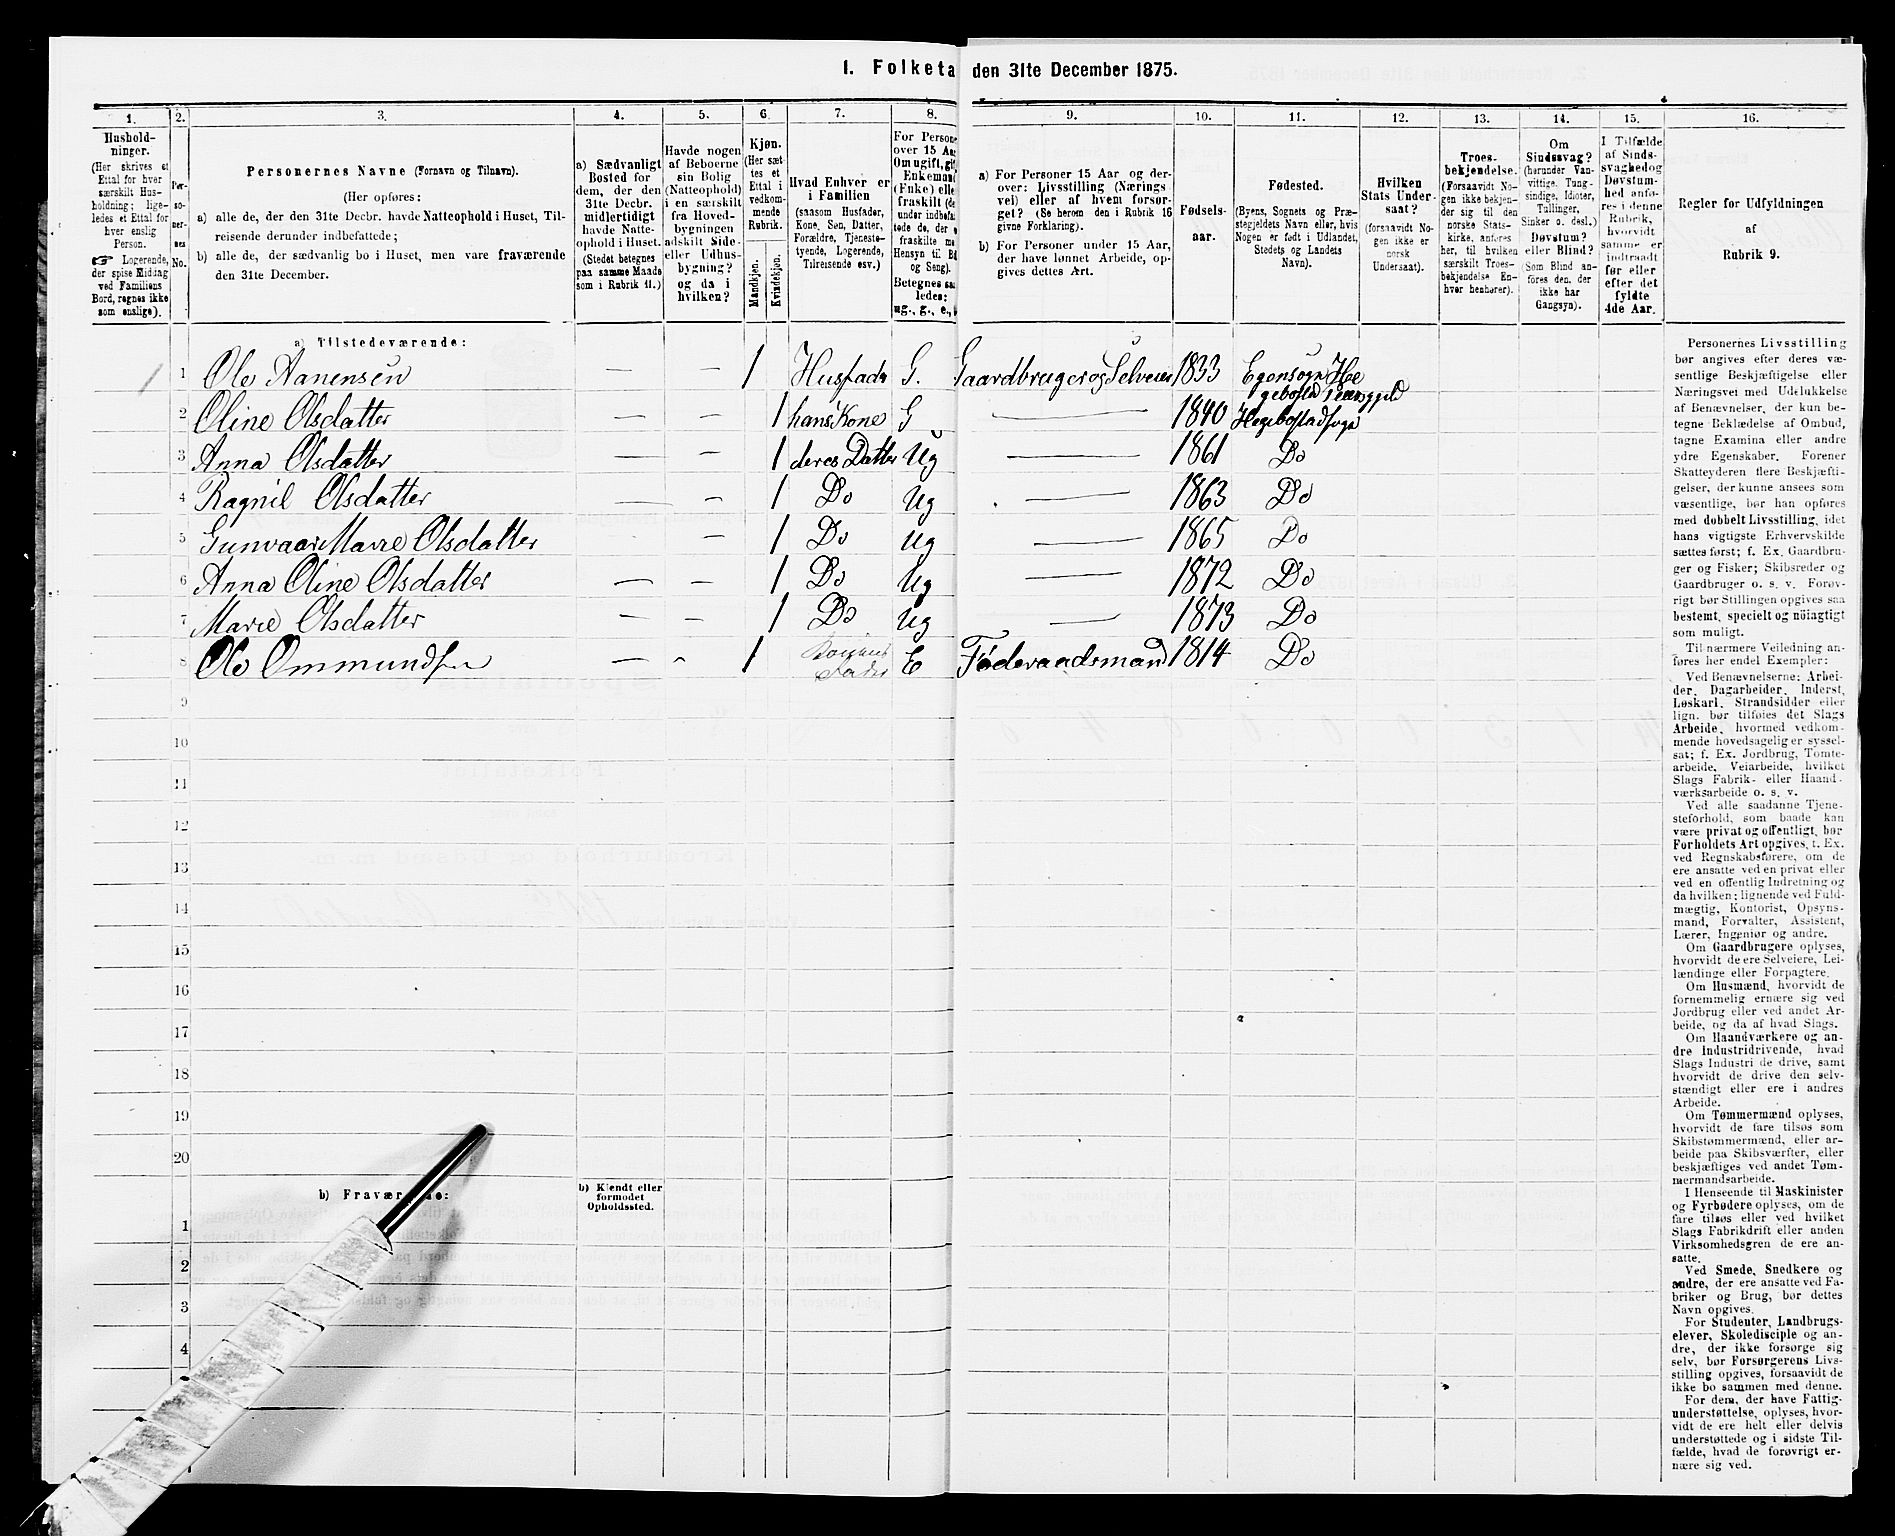 1. Folketa den 31te December 1875.
1.
Hushold-
ninger.
(Her skrives et
Ettal for hver
særskilt Hus-
holdning; lige-
ledes et Ettal for
hver enslig
Person.
☞ Logerende,
der spise Middag
ved Familiens
Bord, regnes ikke
som enslige).
2.
Per-
so-
ner-
nes
No.
3.
Personernes Navne (Fornavn og Tilnavn).
(Her opføres:
a) alle de, der den 31te Decbr. havde Natteophold i Huset, Til-
reisende derunder indbefattede;
b) alle de, der sædvanlig bo i Huset, men vare fraværende
den 31te December.
4.
a) Sædvanligt
Bosted for
dem, der den
31te Decbr.
midlertidigt
havde Natte-
ophold i Huset.
(Stedet betegnes
paa samme Maade
som i Rubrik 11.)
5.
Havde nogen
af Beboerne
sin Bolig
(Natteophold)
i en særskilt
fra Hoved-
bygningen
adskilt Side-
eller Udhus-
bygning?
og da i
hvilken?
6.
Kjøn.
(Her sæt-
tes et
Ettal i
vedkom-
mende
Rubrik.
Mandkjøn.
Kvindekjøn.
7.
Hvad Enhver er
i Familien
(saasom Husfader,
Kone, Søn, Datter,
Forældre, Tjeneste-
tyende, Logerende,
Tilreisende osv.)
8.
For Persone
over 15 Aa
Om ugift, gi
Enkeman
(Fnke) elle
fraskilt (de
under indbefa
tede de, der
fraskilte m
Hensyn til B
og Seng).
Betegnes saa
ledes:
ug., g., e.,
9.
a) For Personer 15 Aar og der-
over: Livsstilling (Nærings-
vei) eller af hvem forsør-
get? (Se herom den i Rubrik 16
givne Forklaring).
b) For Personer under 15 Aar,
der have lønnet Arbeide, op-
gives dettes Art.
10.
Fødsels-
aar.
11.
Fødested.
(Byens, Sognets og Præ-
stegjeldets Navn eller, hvis
Nogen er født i Udlandet,
Stedets og Landets
Navn).
12.
Hvilken
Stats Under-
saat?
(forsaavidt No-
gen ikke er
norsk
Undersaat).
13.
Troes-
bekjendelse.
(Forsaavidt No-
gen ikke bekjen-
der sig til den
norske Stats-
kirke, anføres
her, til hvilken
særskilt Troes-
bekjendelse En-
hver henhører).
14.
Om
Sindssvag?
(herunder Van-
vittige, Tung-
sindige, Idioter,
Tullinger,
Sinker o. desl.)
Døvstum?
eller Blind?
(Som Blind an-
føres den, der
ikke har
Gangsyn).
15.
I Tilfælde
af Sinds-
svaghed og
Døvstum-
hed anfø-
res i denne
Rubrik,
hvorvidt
samme er
indtraadt
før eller
efter det
fyldte
4de Aar.
16.
Regler for Udfyldningen
af
Rubrik 9.
a) Tilstedeværende:
1 1 Ole Aanensen — — 1 Husfader G. Gaardbruger og Selveier 1833 Egensogn He
gebostad Præstgjeld
2 Oline Olsdatter — — 1 hans Kone G — 1840 Hegebostad sogn
3 Anna Olsdatter — — 1 deres Datter Ug — 1861 Do
4 Ragnil Olsdatter — — 1 Do Ug — 1863 Do
5 Gunvaar Marie Olsdatter — 1 Do Ug — 1865 Do
6 Anna Oline Olsdatter — — 1 Do Ug — 1872 Do
7 Marie Olsdatter — — 1 Do Ug — 1873 Do
8 Ole Ommundsen — - 1 Fader E Føderaadsmand 1814 Do
9
10
11
12
13
14
15
16
17
18
19
20
b) Fravær de:
b) Kjendt eller
formodet
Opholdssted.
1
2
3
4
Personernes Livsstilling
bør angives efter deres væ-
sentlige Beskjæftigelse eller
Næringsvei med Udelukkelse
af Benævnelser, der kun be-
tegne Beklædelse af Ombud,
tagne Examina eller andre
ydre Egenskaber. Forener
Skatteyderen flere Beskjæfti-
gelser, der kunne ansees som
væsentlige, bør han opføres
med dobbelt Livsstilling, idet
hans vigtigste Erhvervskilde
sættes først; f. Ex. Gaardbru-
ger og Fisker; Skibsreder og
Gaardbruger o. s. v. Forøv-
rigt bør Stillingen opgives saa
bestemt, specielt og nöiagtigt
som muligt.
Til nærmere Veiledning an-
føres her endel Exempler:
Ved Benævnelserne: Arbei-
der, Dagarbeider, Inderst,
Løskarl, Strandsidder eller
lign. bør tilføies det Slags
Arbeide, hvormed vedkom-
mende hovedsagelig er syssel-
sat; f. Ex. Jordbrug, Tomte-
arbeide, Veiarbeide, hvilket
Slags Fabrik- eller Haand-
værksarbeide o. s. v.
Ved alle saadanne Tjene-
steforhold, som baade kan
være privat og offentligt, bør
Forholdets Art opgives, f. Ex.
ved Regnskabsførere, om de
ere ansatte ved en privat eller
ved en offentlig Indretning og
da hvilken; lignende ved Fuld-
mægtig, Kontorist, Opsyns-
mand, Forvalter, Assistent,
Lærer, Ingeniør og andre.
Om Gaardbrugere oplyses,
hvorvidt de ere Selveiere, Lei-
lændinge eller Forpagtere.
Om Husmænd, hvorvidt de
fornemmelig ernære sig ved
Jordbrug eller ved andet Ar-
beide, og da af hvad Slags.
Om Haandværkere og an-
dre Industridrivende, hvad
Slags Industri de drive, samt
hvorvidt de drive den selv-
stændigt eller ere i andres
Arbeide.
Om Tømmermænd oplyses,
hvorvidt de fare tilsøs som
Skibstømmermænd, eller ar-
beide paa Skibsværfter, eller
beskjæftiges ved andet Tøm-
mermandsarbeide.
I Henseende til Maskinister
og Fyrbødere oplyses, om de
fare tilsøs eller ved hvilket
Slags Fabrikdrift eller anden
Virksomhedsgren de ere an-
satte.
Ved Smede, Snedkere og
andre, der ere ansatte ved Fa-
briker og Brug, bør dettes
Navn opgives.
For Studenter, Landbrugs-
elever, Skoledisciple og an-
dre, der ikke forsørge sig
selv, bør Forsørgerens Livs-
stilling opgives, forsaavidt de
ikke bo sammen med denne.
For dem, der have Fattig-
understøttelse, oplyses, hvor-
vidt de ere helt eller delvis
understøttede og i sidste Til-
fælde, hvad de forøvrigt er-
nære sig ved.